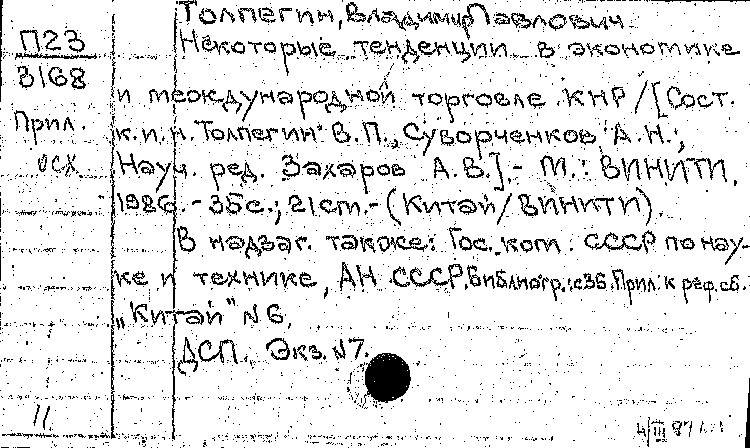 Толпегин, Владимир Павлович
П23 Некоторые тенденции в экономике
3168
и международной торговле КНР / [Сост.
Прил. к.и.н. Толпегин В.П., Суворченков А.Н.;
осх Науч. ред. Захаров А.В.]. - М.: ВИНИТИ,
1986. - 35с.; 21 cm. - (Китай / ВИНИТИ).
В надзаг. также: Гос. ком. СССР по нау-
ке и технике, АН СССР. Библиогр.: с 35. Прил. к реф. сб.
„Китай" N 6.
ДСП. Экз. N7.
11